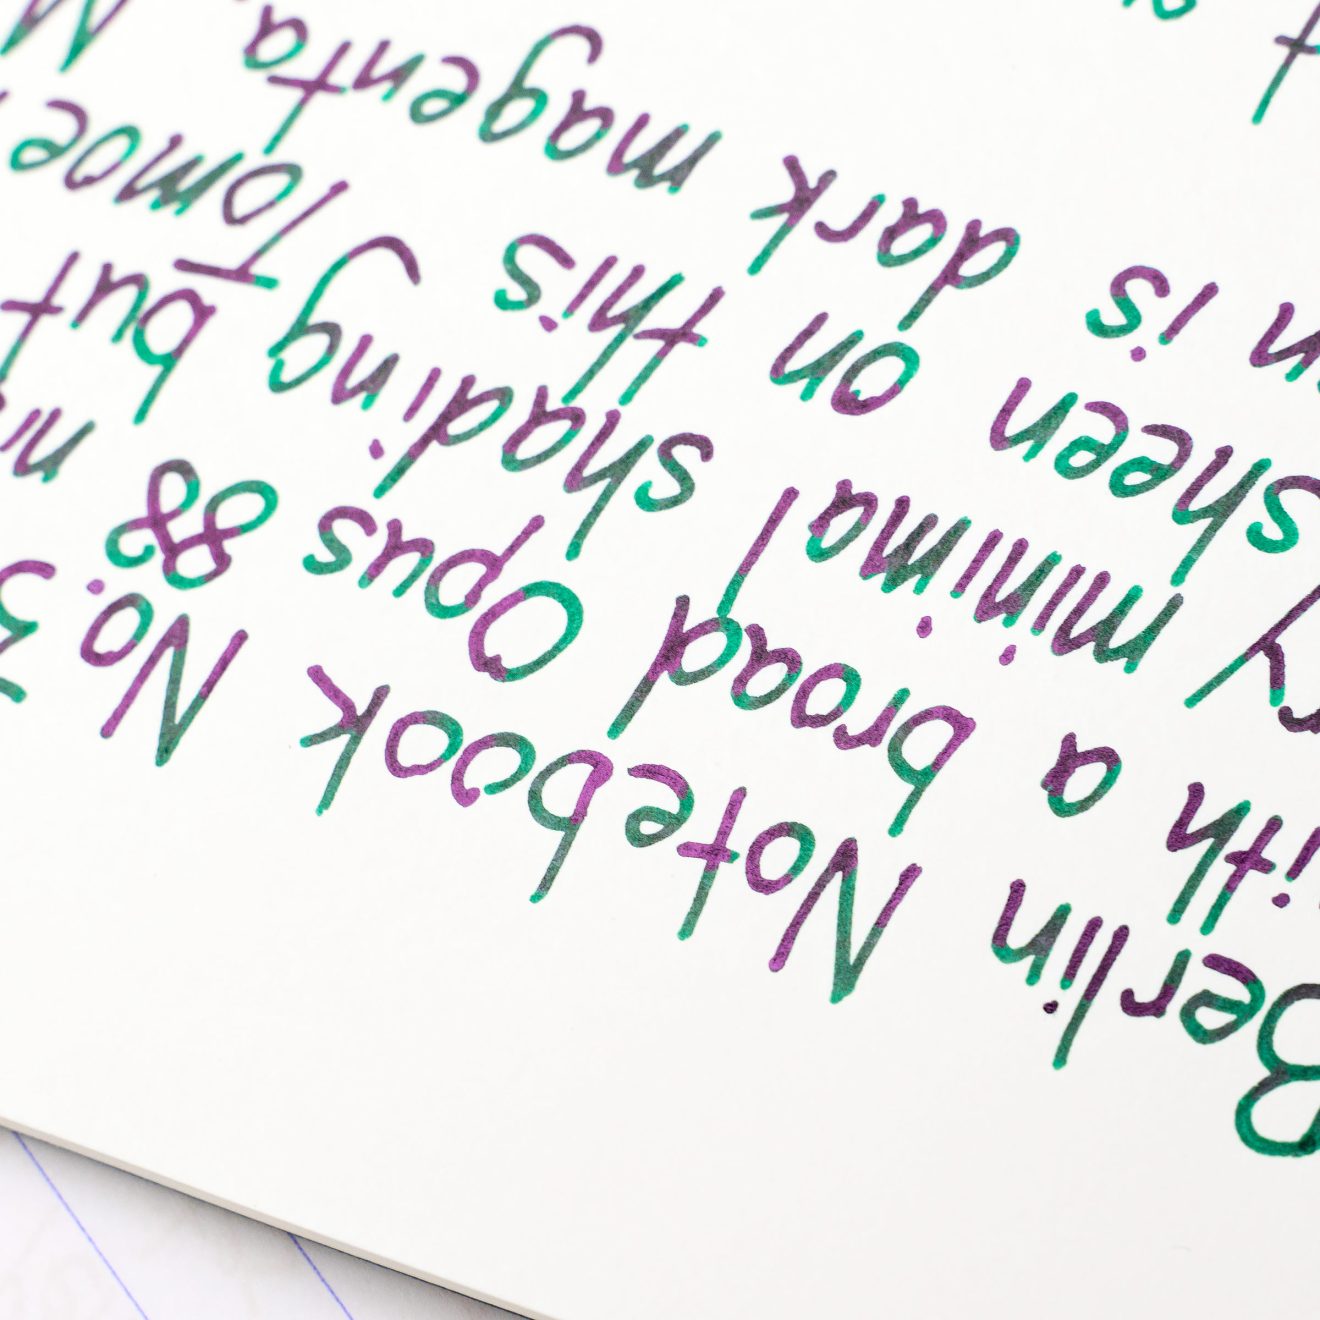 Berlin Notebook No. 3
with a broad Opus 88
minimal shading but
sheen on this Tomoe
is dark magenta.